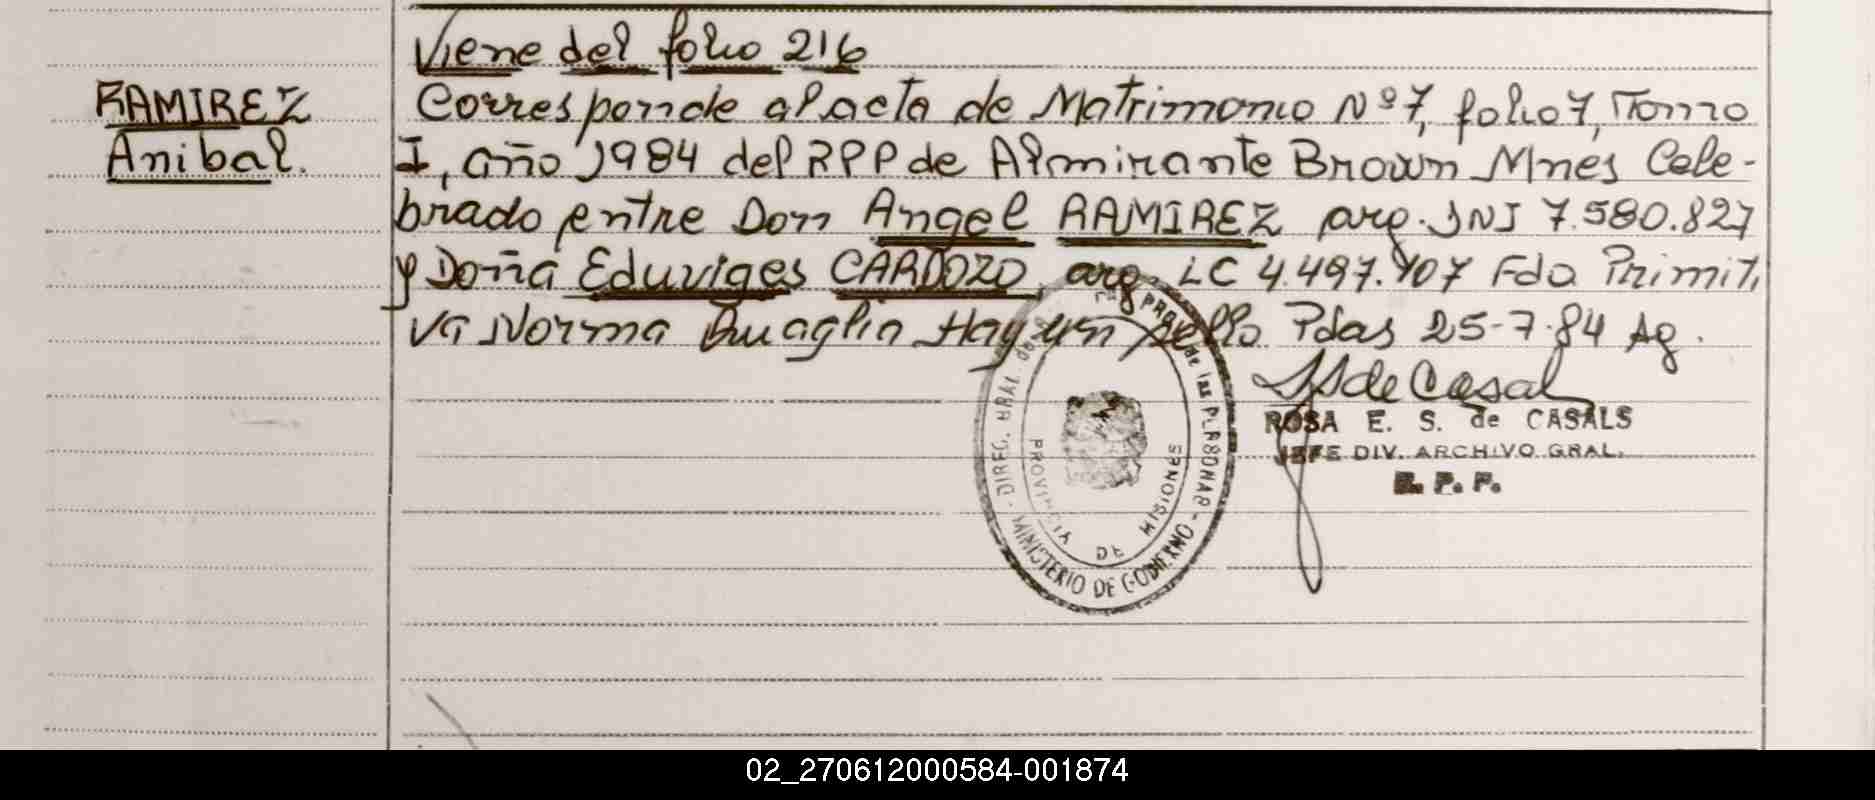 Viene del folio 216
RAMIREZ
Anibal.
Corresponde al acta de Matrimonio Nº 7, folio 7, Tomo
I, año 1984 del RPP de Almirante Brown Mnes Cele-
brado entre Don Angel RAMIREZ arg. DNI 7.580.827
y Doña Eduviges CARDOZO arg LC 4.497.707 Fdo Primiti
va Norma Quaglia Hay un sello. Pdas 25-7-84 Ag.
ROSA E. S. de CASALS
JEFE DIV. ARCHIVO GRAL.
R. P. P.
DIREC. GRAL. de
PROV. de las PERSONAS
MINISTERIO DE GOBIERNO
PROVINCIA DE MISIONES
02_270612000584-001874